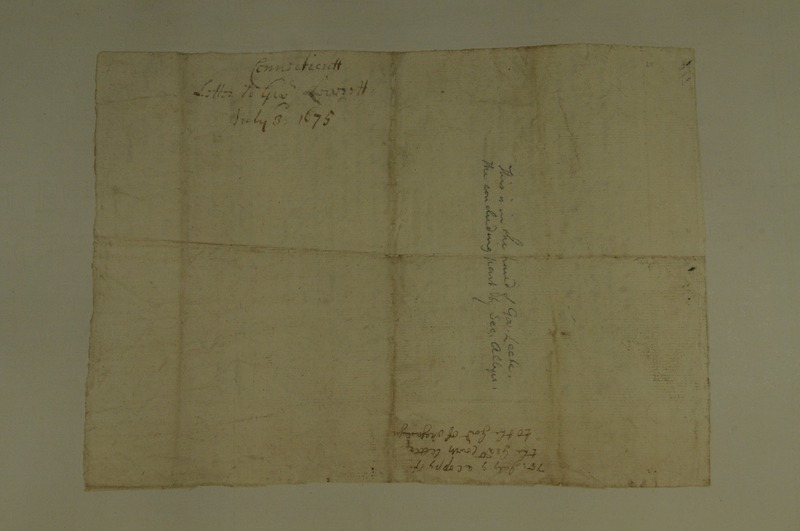 Connecticutt
Letter to Gov.r Leverett
July 8 1675
This is in the hand of Gov. Leete.
the concluding part by Sec. Allyn.
75. July 9 a coppy of
the Letter
to the Gov.r of